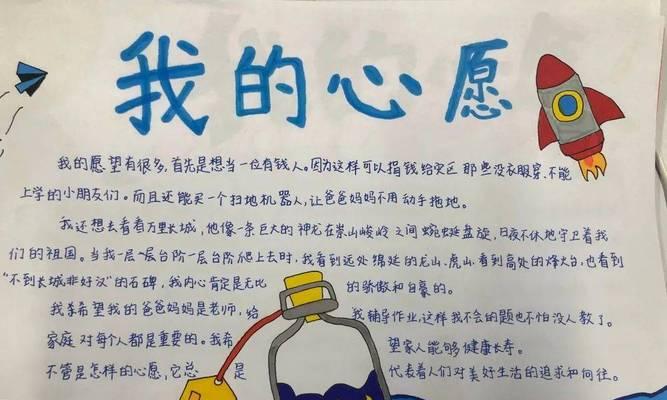 我的心愿
我的愿望有很多,首先是想当一位有钱人。因为这样可以捐钱给灾区那些没衣服穿、不能
上学的小朋友们。而且还能买一个扫地机器人,让爸爸妈妈不用动手拖地。
我还想去看看万里长城,他像一条巨大的神龙在崇山峻岭之间蜿蜒盘旋,日夜不休地守卫着我
们的祖国。当我一层一层台阶一层台阶爬上去时,我看到远处绵延的龙山、虎山,看到高处的烽火台,也看到
"不到长城非好汉"的石碑,我内心肯定是无比的骄傲和自豪的。
我希望我的爸爸妈妈是老师,给我辅导作业,这样我不会的题也不怕没人教了。
家庭对每个人都是重要的。我希望家人能够健康长寿。
不管是怎样的心愿,它总是代表着人们对美好生活的追求和向往。